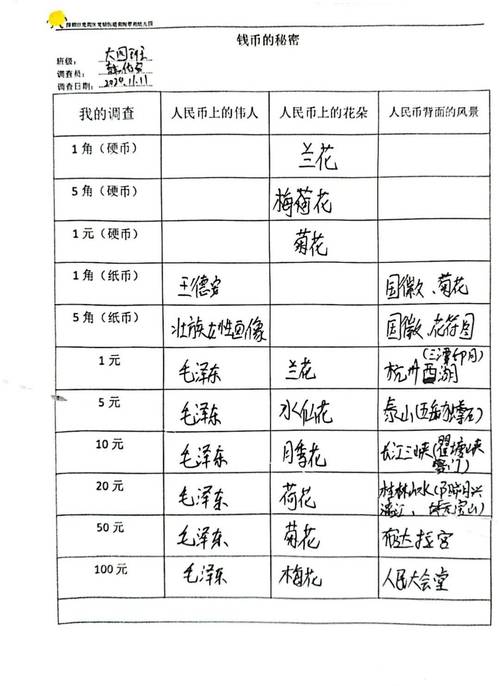 钱币的秘密
班级：大四班
调查员：
调查日期：2024.11.11
我的调查 人民币上的伟人 人民币上的花朵 人民币背面的风景
1 角（硬币） 兰花
5 角（硬币） 梅荷花
1 元（硬币） 菊花
1 角（纸币） 王德安 国徽、菊花
5 角（纸币） 壮族女性画像 国徽、花符图
1 元 毛泽东 兰花 杭州西湖（三潭印月）
5 元 毛泽东 水仙花 泰山（五岳
10 元 毛泽东 月季花 长江三峡（瞿塘峡夔门）
20 元 毛泽东 荷花 桂林山水（阳朔兴
漓江、
50 元 毛泽东 菊花 布达拉宫
100 元 毛泽东 梅花 人民大会堂